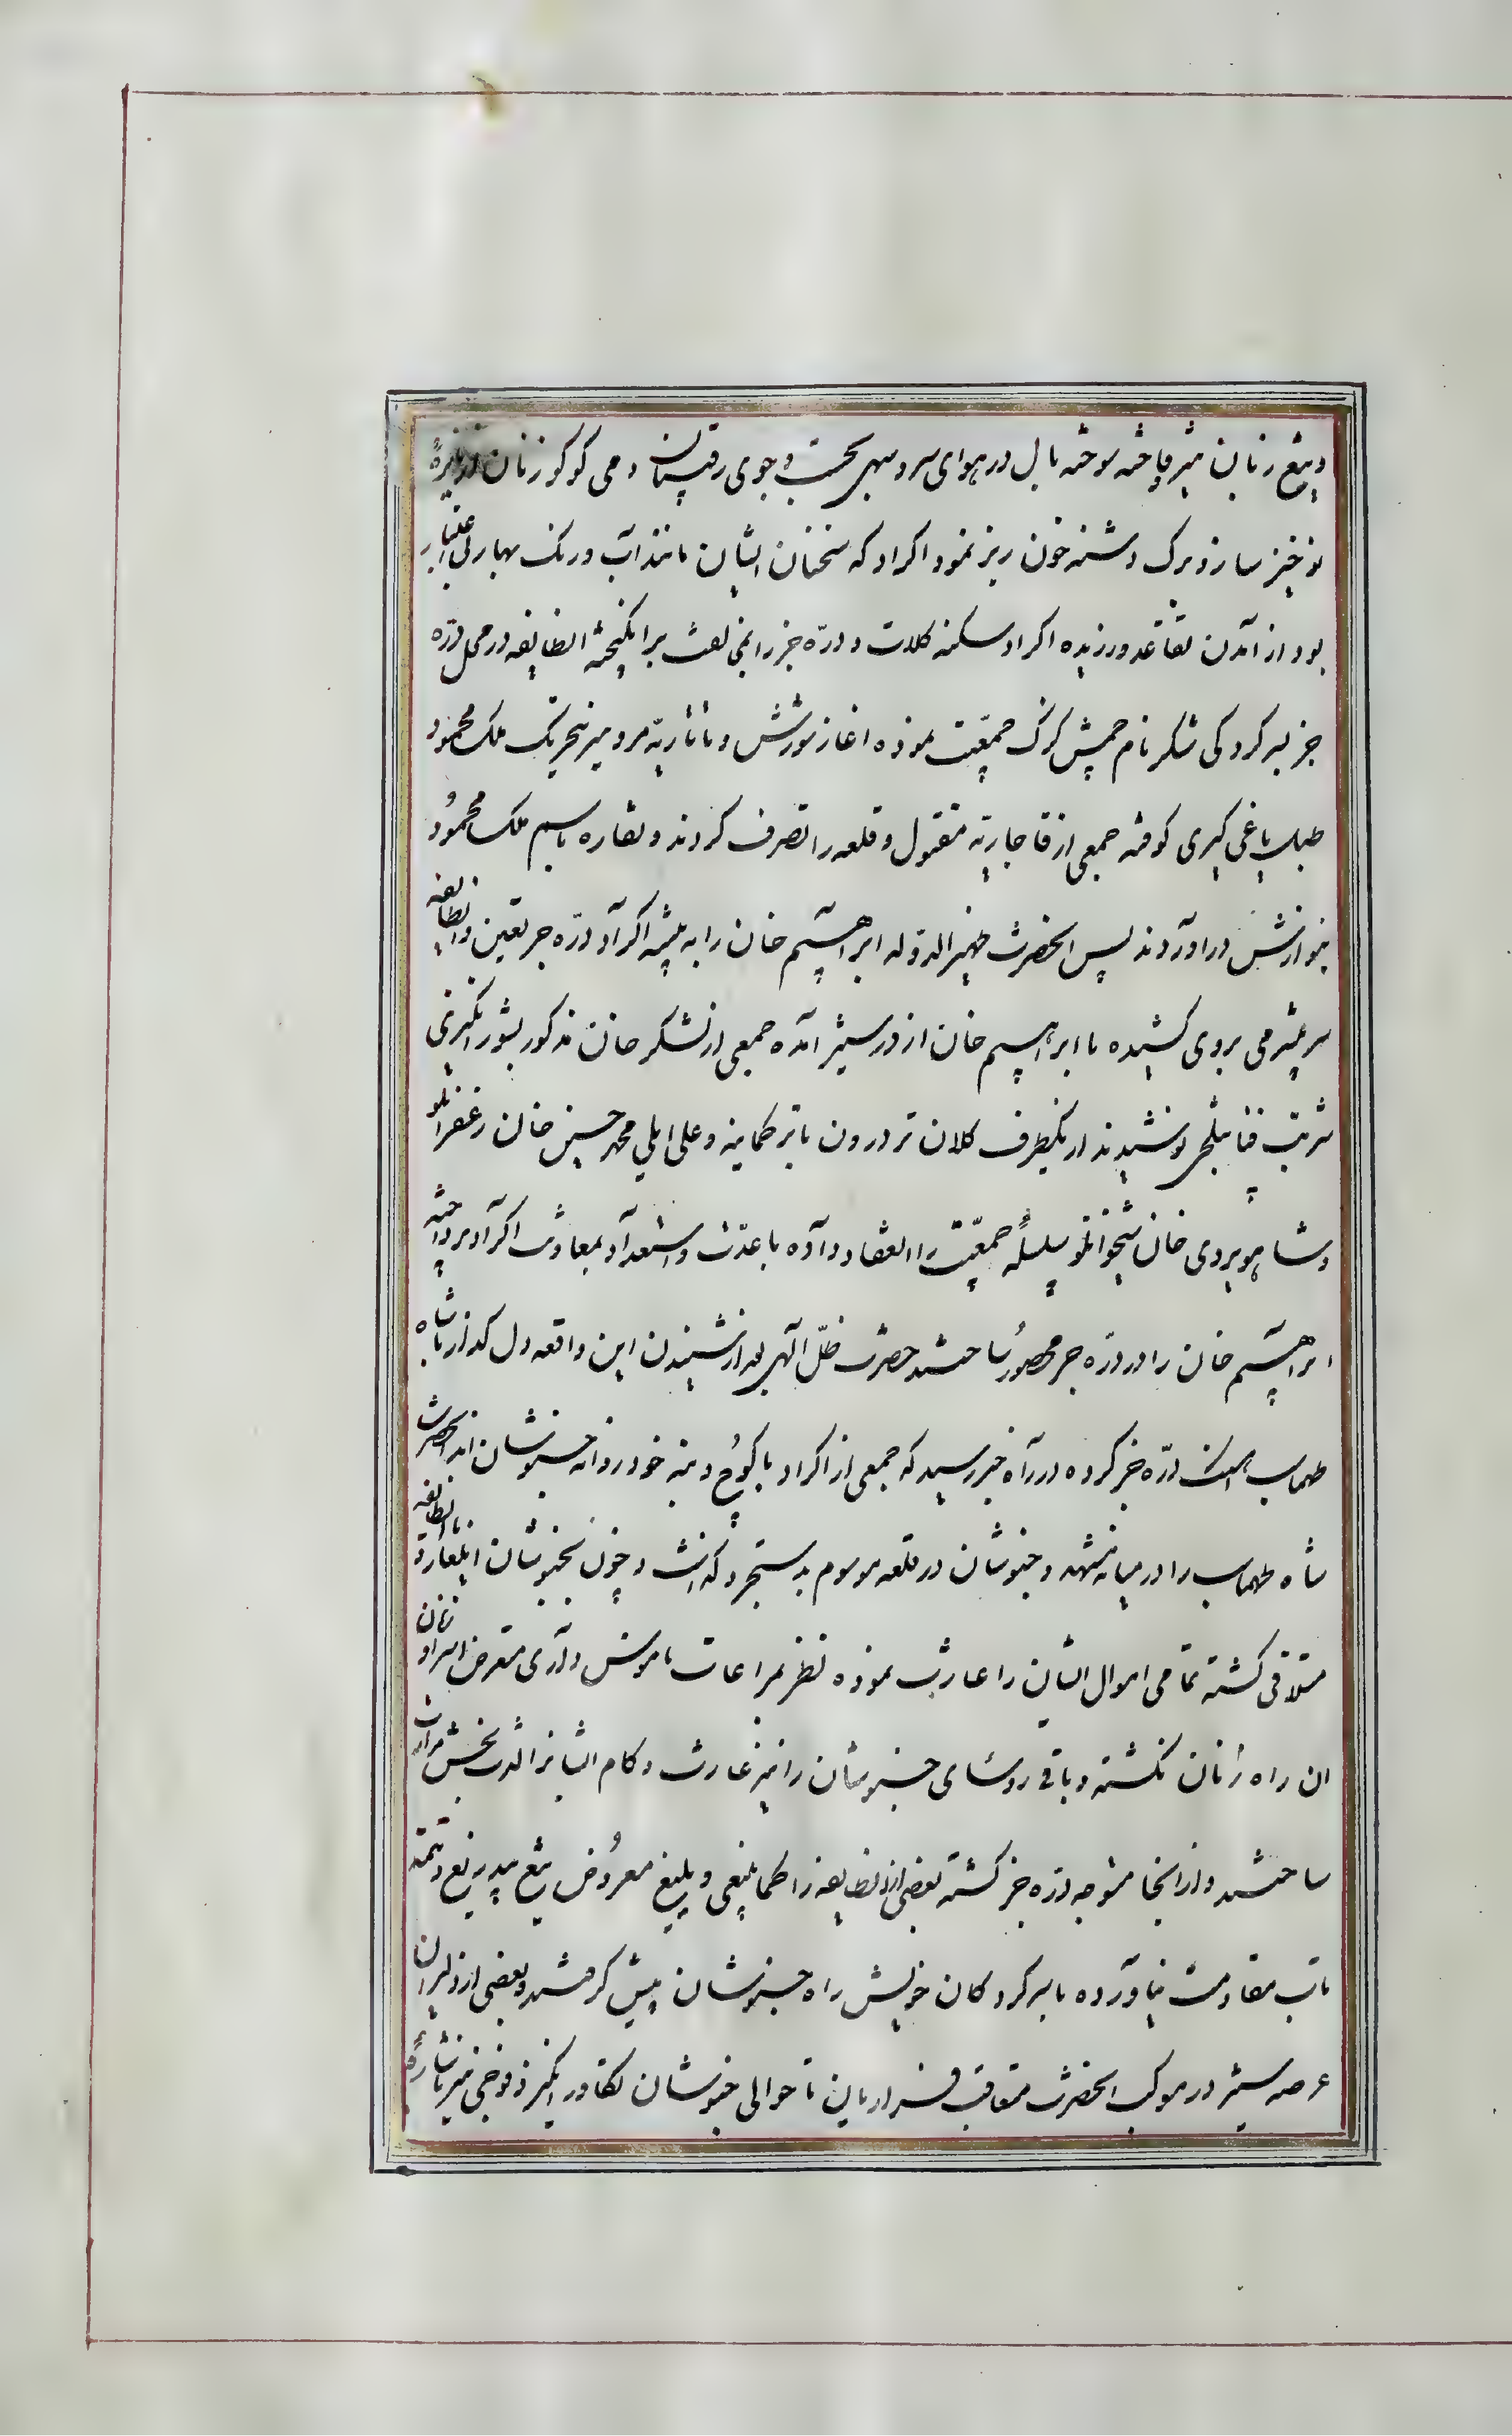 و تیغ زنان نیز فاخته سوخته بال در هوای سرو سهی بجست و جوی رقیبان و می کوکو زنان
نوخیز ساز و برک دشنه خون ریز نمود اکراد که سخنان ایشان مانند آب و رنک بهار بی اعتبار
بود از آمدن تقاعد ورزیده اکراد سکنه کلات و درّه جز را بمخالفت برانکیخته انطایفه در محل درّه
جز بسرکردکی شکر نام چمیش کزک جمعیّت نموده اغاز شورش و تاتاریّه مرو نیز بتحریک ملک محمود
طبل یاغی کیری کوفته جمعی از قاجاریّه مقتول و قلعه را تصرف کردند و نقاره باسم ملک محمود
بنوازش دراوردند پس انحضرت ظهیرالدوله ابراهیم خان را به تنبیه اکراد درّه جز تعیین و انطایفه
سر بیشرمی بروی کشیده با ابراهیم خان از در ستیز آمده جمعی از لشکر خان مذکور بشورانکیزی
شربت فنا بتلخی نوشیدند از یکطرف کلان تر درون با تراکمه و علی ایلی محمد حسین خان زعفرانلو
و شاهویردی خان شیخوانلو سلسله جمعیّت را انعقاد داده با عدّت و استعداد بمعاونت اکراد پرداخته
ابراهیم خان را در درّه جز محصور ساختند حضرت ظلّ الهی بعد از شنیدن این واقعه دل کداز با شاه
طهماسب اهنک درّه جز کرده در راه خبر رسید که جمعی از اکراد با کوچ و بنه خود روانه خبوشان اند انحضرت
شاه طهماسب را در میانه مشهد و خبوشان در قلعه موسوم بدستجرد کذاشت و چون بخبوشان ایلغار با انطایفه
متلاقی کشته تمامی اموال ایشان را غارت نموده نظر بمراعات ناموس داری متعرض اسرا و زنان
ان راه زنان نکشته و باقی روسای خبوشان را نیز غارت و کام ایشانرا لذت بخش مرارت
ساختند و از انجا متوجه درّه جز کشته بعضی از انطایفه را طعمه تیغ بیدریغ و تتمه
تاب مقاومت نیاورده با سرکردکان خویش راه خبوشان پیش کرفتند و بعضی از دلیران
عرصه ستیز در موکب انحضرت متعاقب فراریان تا حوالی خبوشان تکاور انکیز و فوجی نیز باشاره